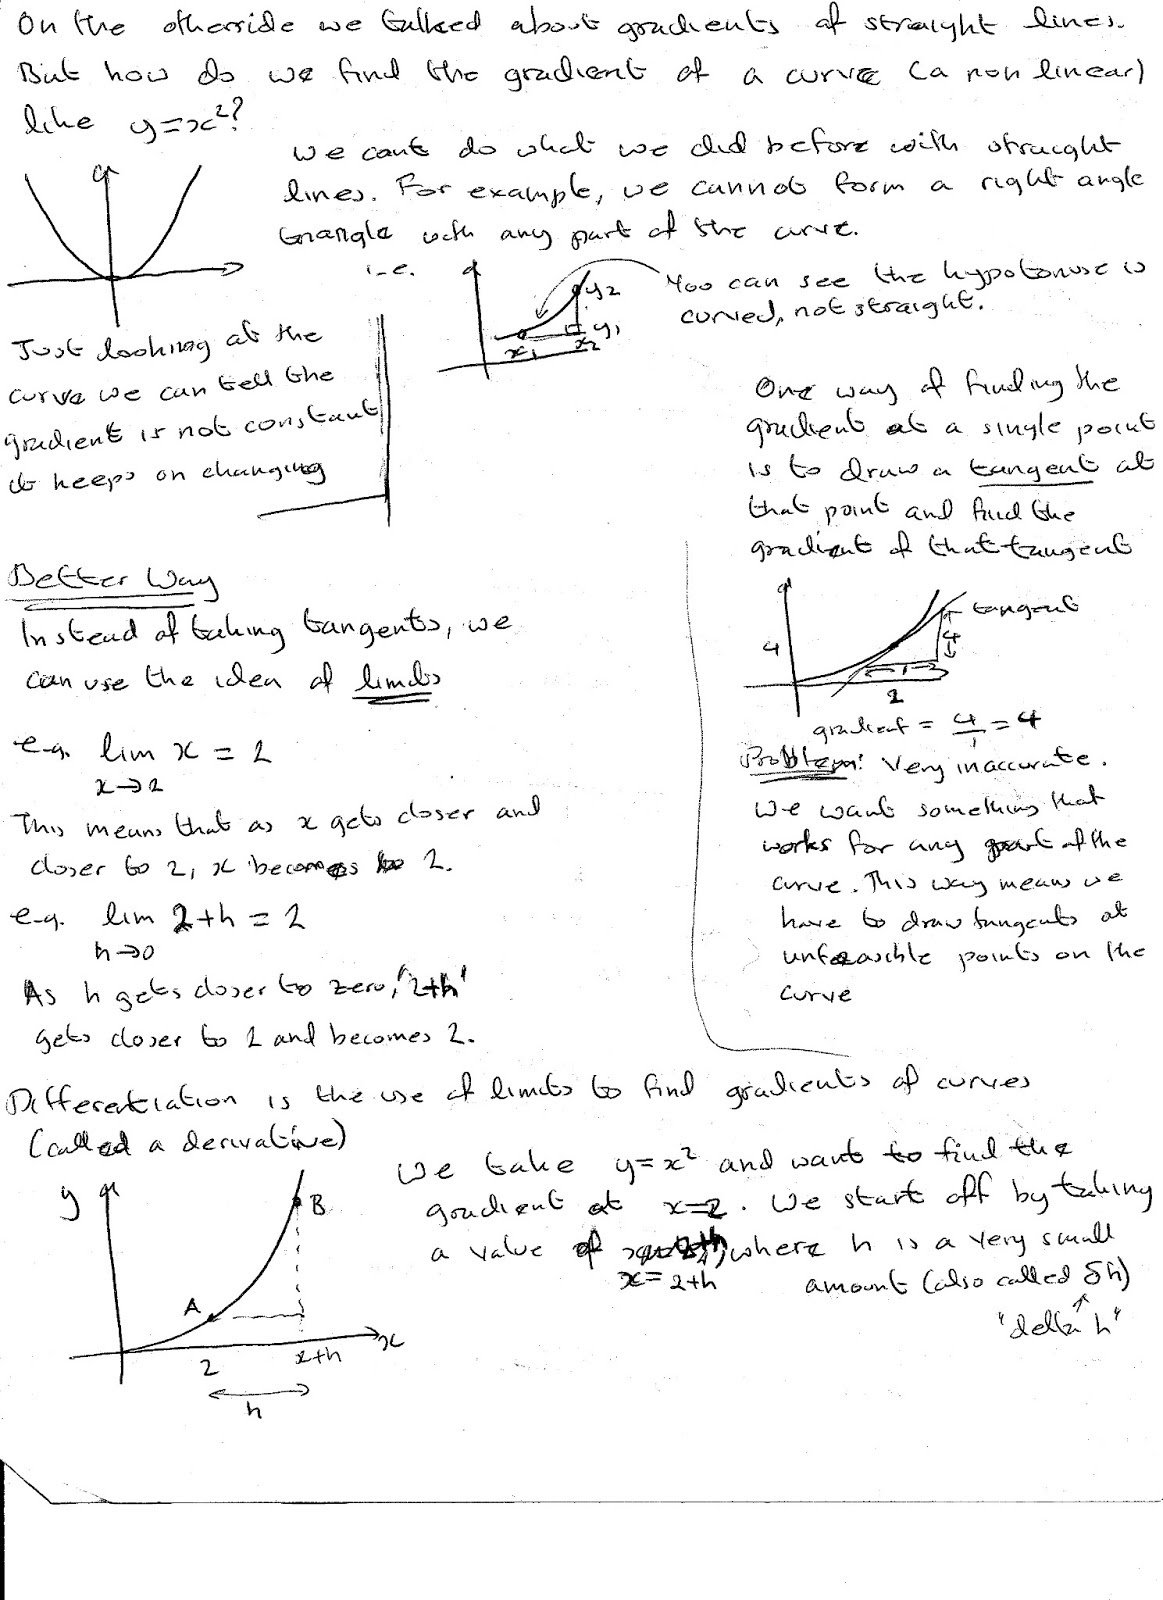 On the otherside we talked about gradients of straight lines.
But how do we find the gradient of a curve (a non linear)
like y=x²?
We cant do what we did before with straight
lines. For example, we cannot form a right angle
triangle with any part of the curve.
i.e.
y2
y1
x1
x2
You can see the hypotonuse is
curved, not straight.
Just looking at the
curve we can tell the
gradient is not constant
it keeps on changing
One way of finding the
gradient at a single point
is to draw a tangent at
that point and find the
gradient of that tangent
tangent
4
4
1
2
gradient = 4/1 = 4
Problem: Very inaccurate.
We want something that
works for any part of the
curve. This way means we
have to draw tangents at
unfeasible points on the
curve
Better Way
Instead of taking tangents, we
can use the idea of limits
e.g. lim x = 2
x→2
This means that as x gets closer and
closer to 2, x becomes 2.
e.g. lim 2+h = 2
h→0
As h gets closer to zero, '2+h'
gets closer to 2 and becomes 2.
Differentiation is the use of limits to find gradients of curves
(called a derivative)
y
B
A
2
x+h
x
h
We take y=x² and want to find the
gradient at x=2. We start off by taking
a value of where h is a very small
x=2+h
amount (also called δh)
"delta h"